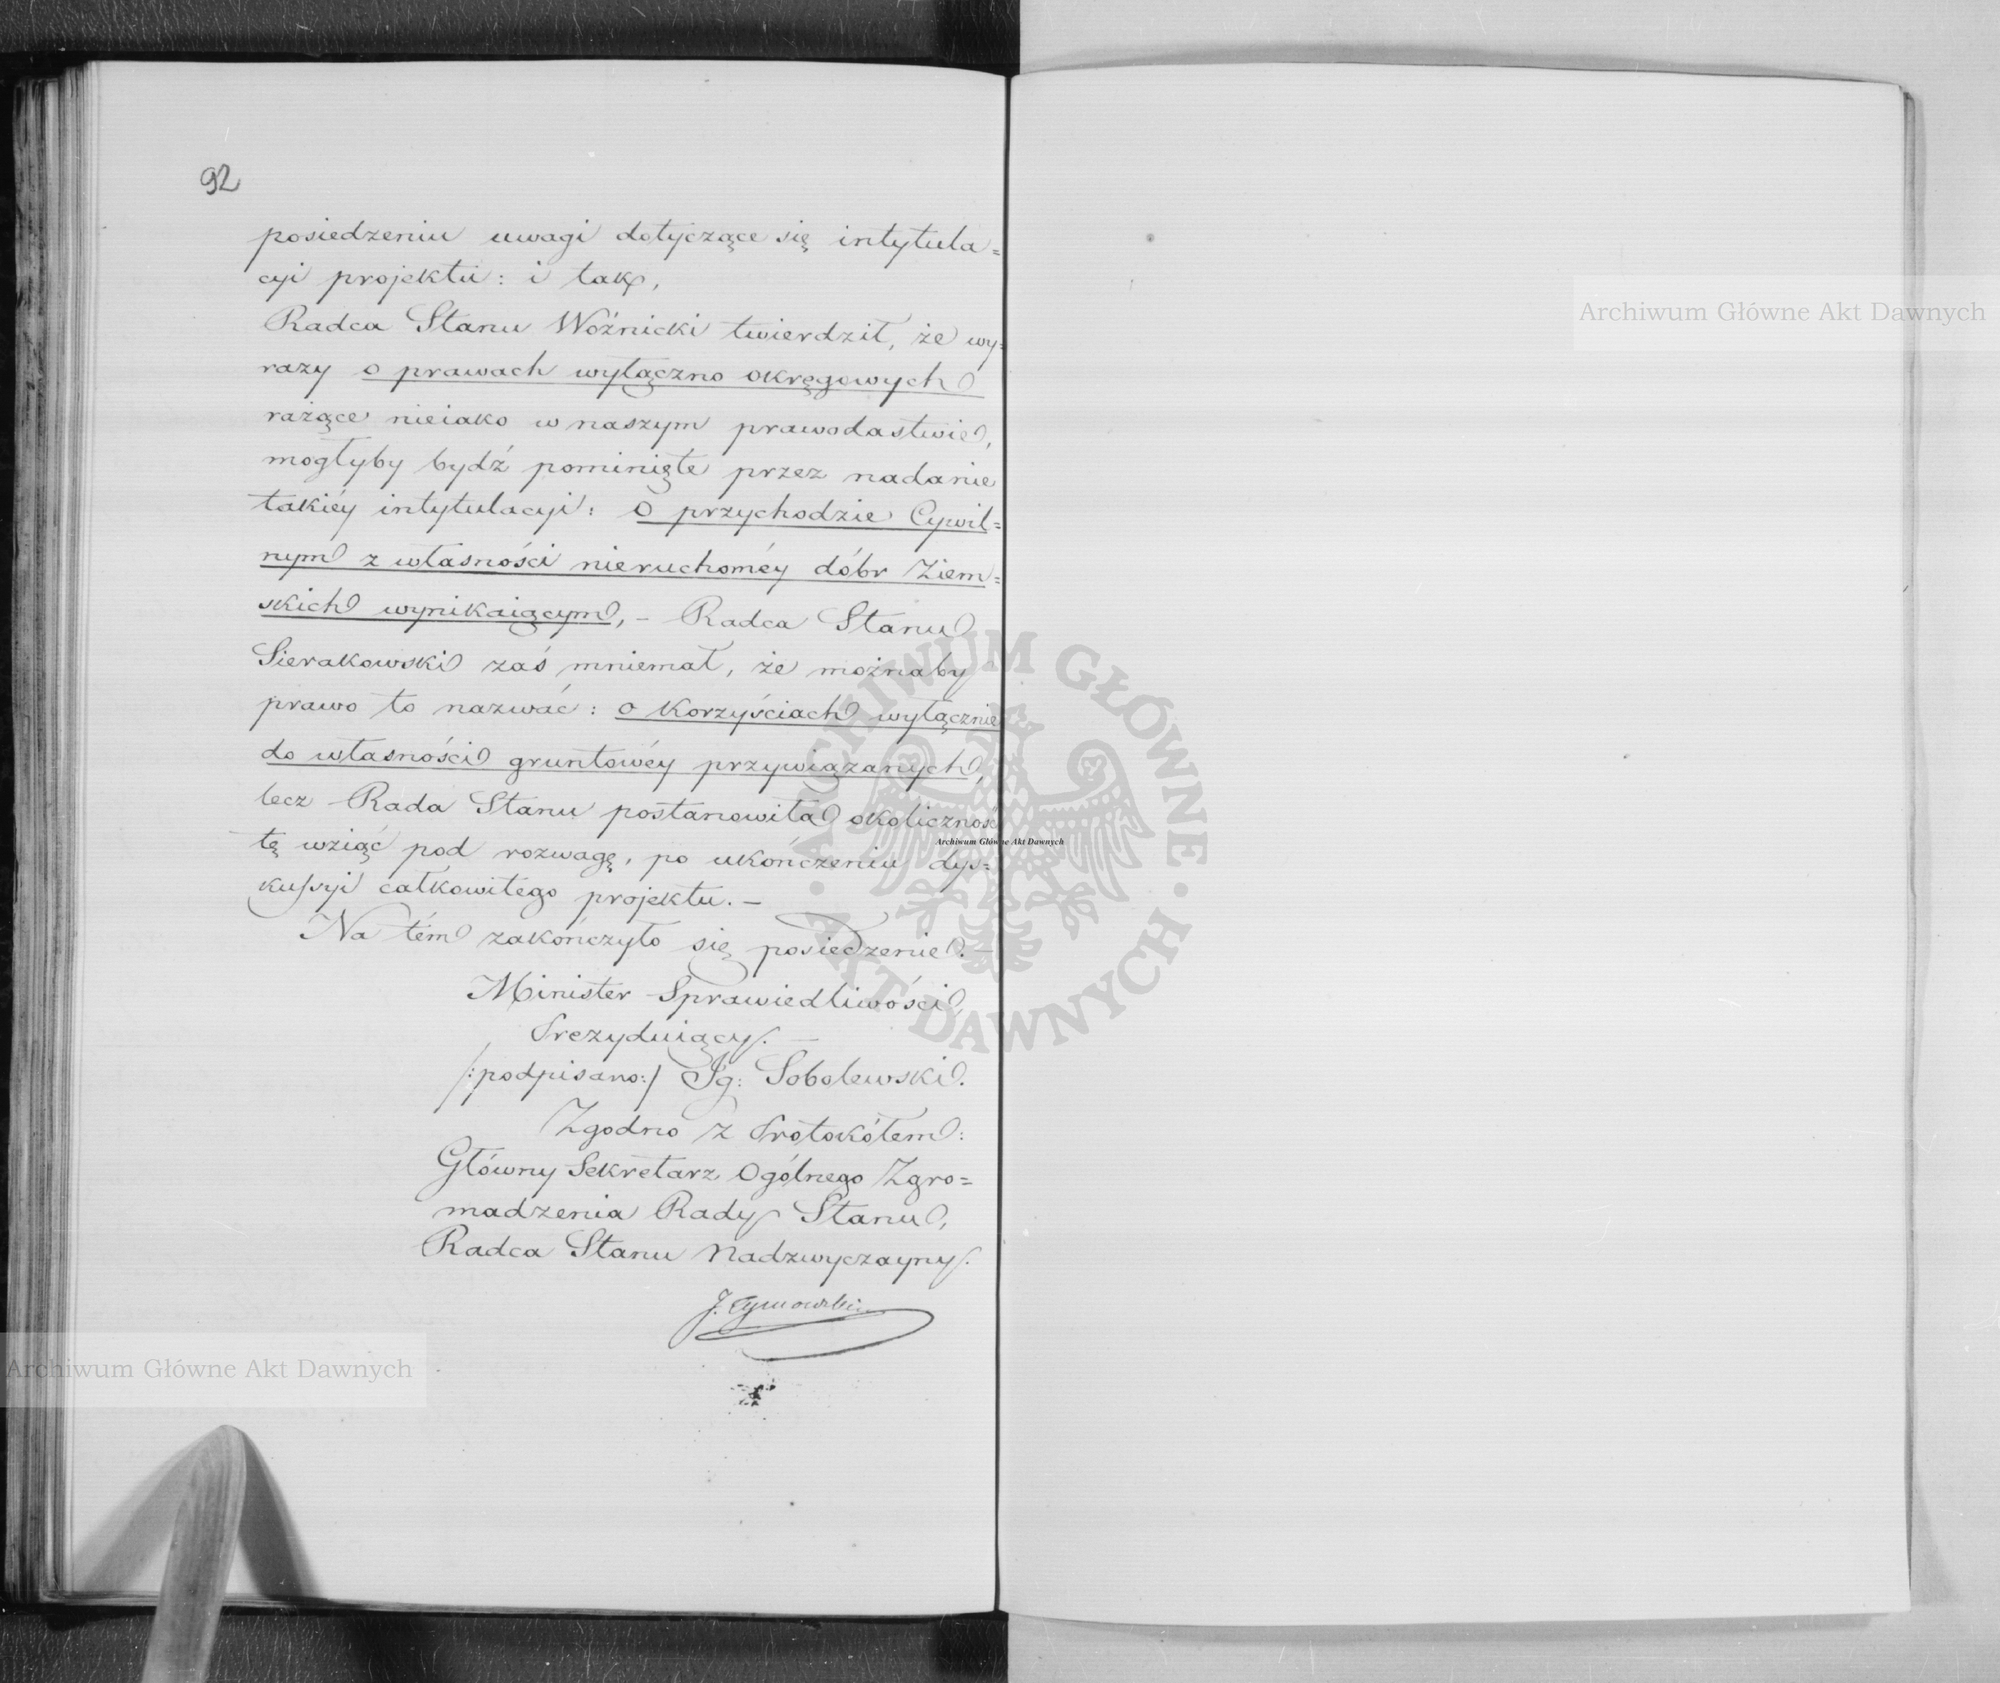 92
posiedzeniu uwagi dotyczące się intytula=
cyi projektu: i tak,
Radca Stanu Woźnicki twierdził, że wy=
razy o prawach wyłączno okręgowych
rażące nieiako w naszym prawodastwie,
mogłyby bydź pominięte przez nadanie
takiéy intytulacyi: O przychodzie Cywil=
nym z własności nieruchoméy dóbr Ziem=
skich wynikaiącym, – Radca Stanu
Sierakowski zaś mniemał, że możnaby
prawo to nazwać: o korzyściach wyłącznie
do własności gruntowéy przywiązanych,
lecz Rada Stanu postanowiła okoliczność
tę wziąć pod rozwagę, po ukończeniu dys=
kussyi całkowitego projektu. –
Na tém zakończyło się posiedzenie. –
Minister Sprawiedliwości,
Prezyduiący. –
/:podpisano:/ Ig: Sobolewski.
Zgodno z Protokółem:
Główny Sekretarz Ogólnego Zgro=
madzenia Rady Stanu,
Radca Stanu Nadzwyczayny.
J. Tymowski
Archiwum Główne Akt Dawnych
ARCHIWUM GŁÓWNE · AKT DAWNYCH ·
Archiwum Główne Akt Dawnych
Archiwum Główne Akt Dawnych